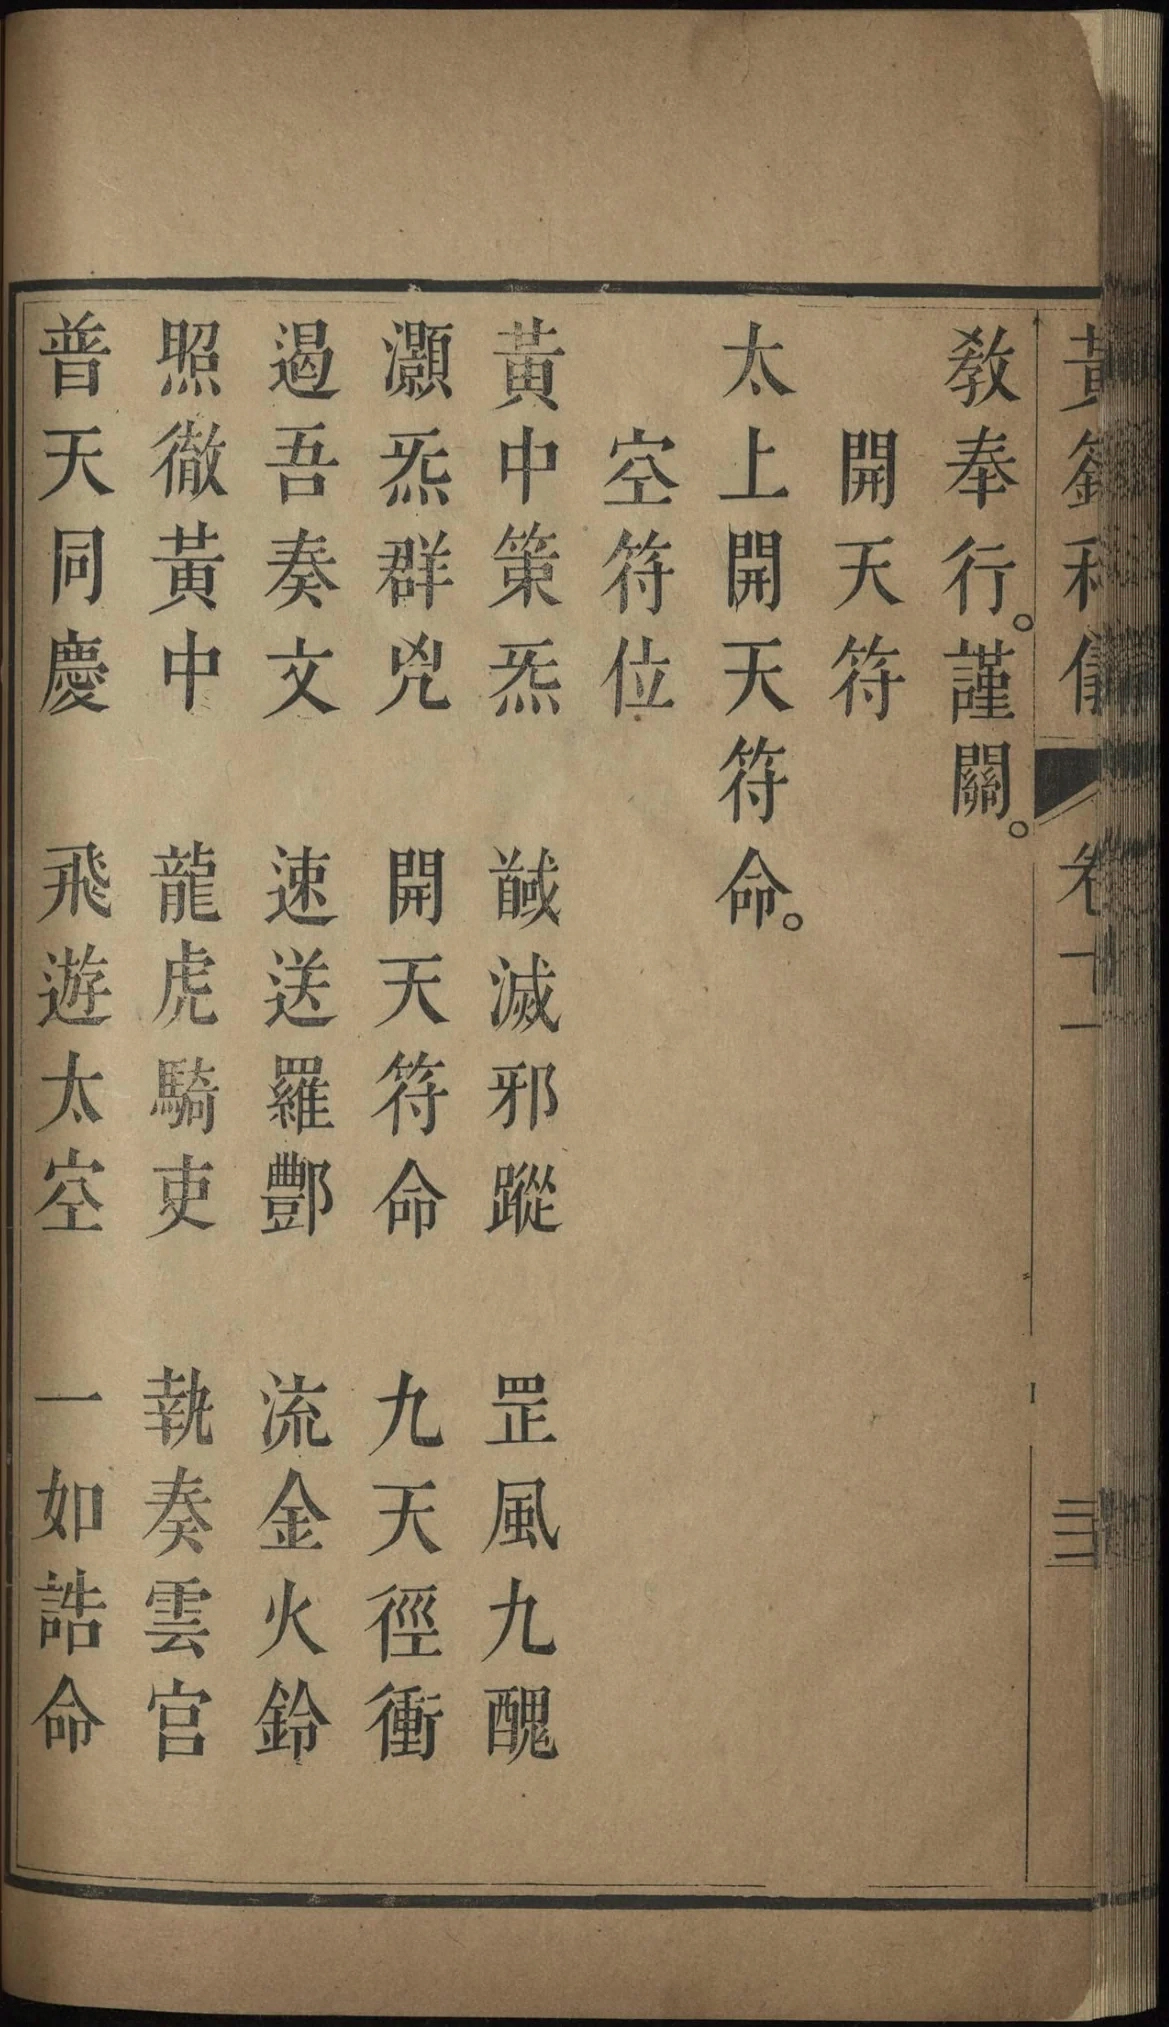 黃籙科儀 卷十一 三
教奉行。謹關。
開天符
太上開天符命。
空符位
黃中策炁 馘滅邪蹤 罡風九醜
灝炁群兇 開天符命 九天徑衝
遏吾奏文 速送羅酆 流金火鈴
照徹黃中 龍虎騎吏 執奏雲官
普天同慶 飛遊太空 一如誥命